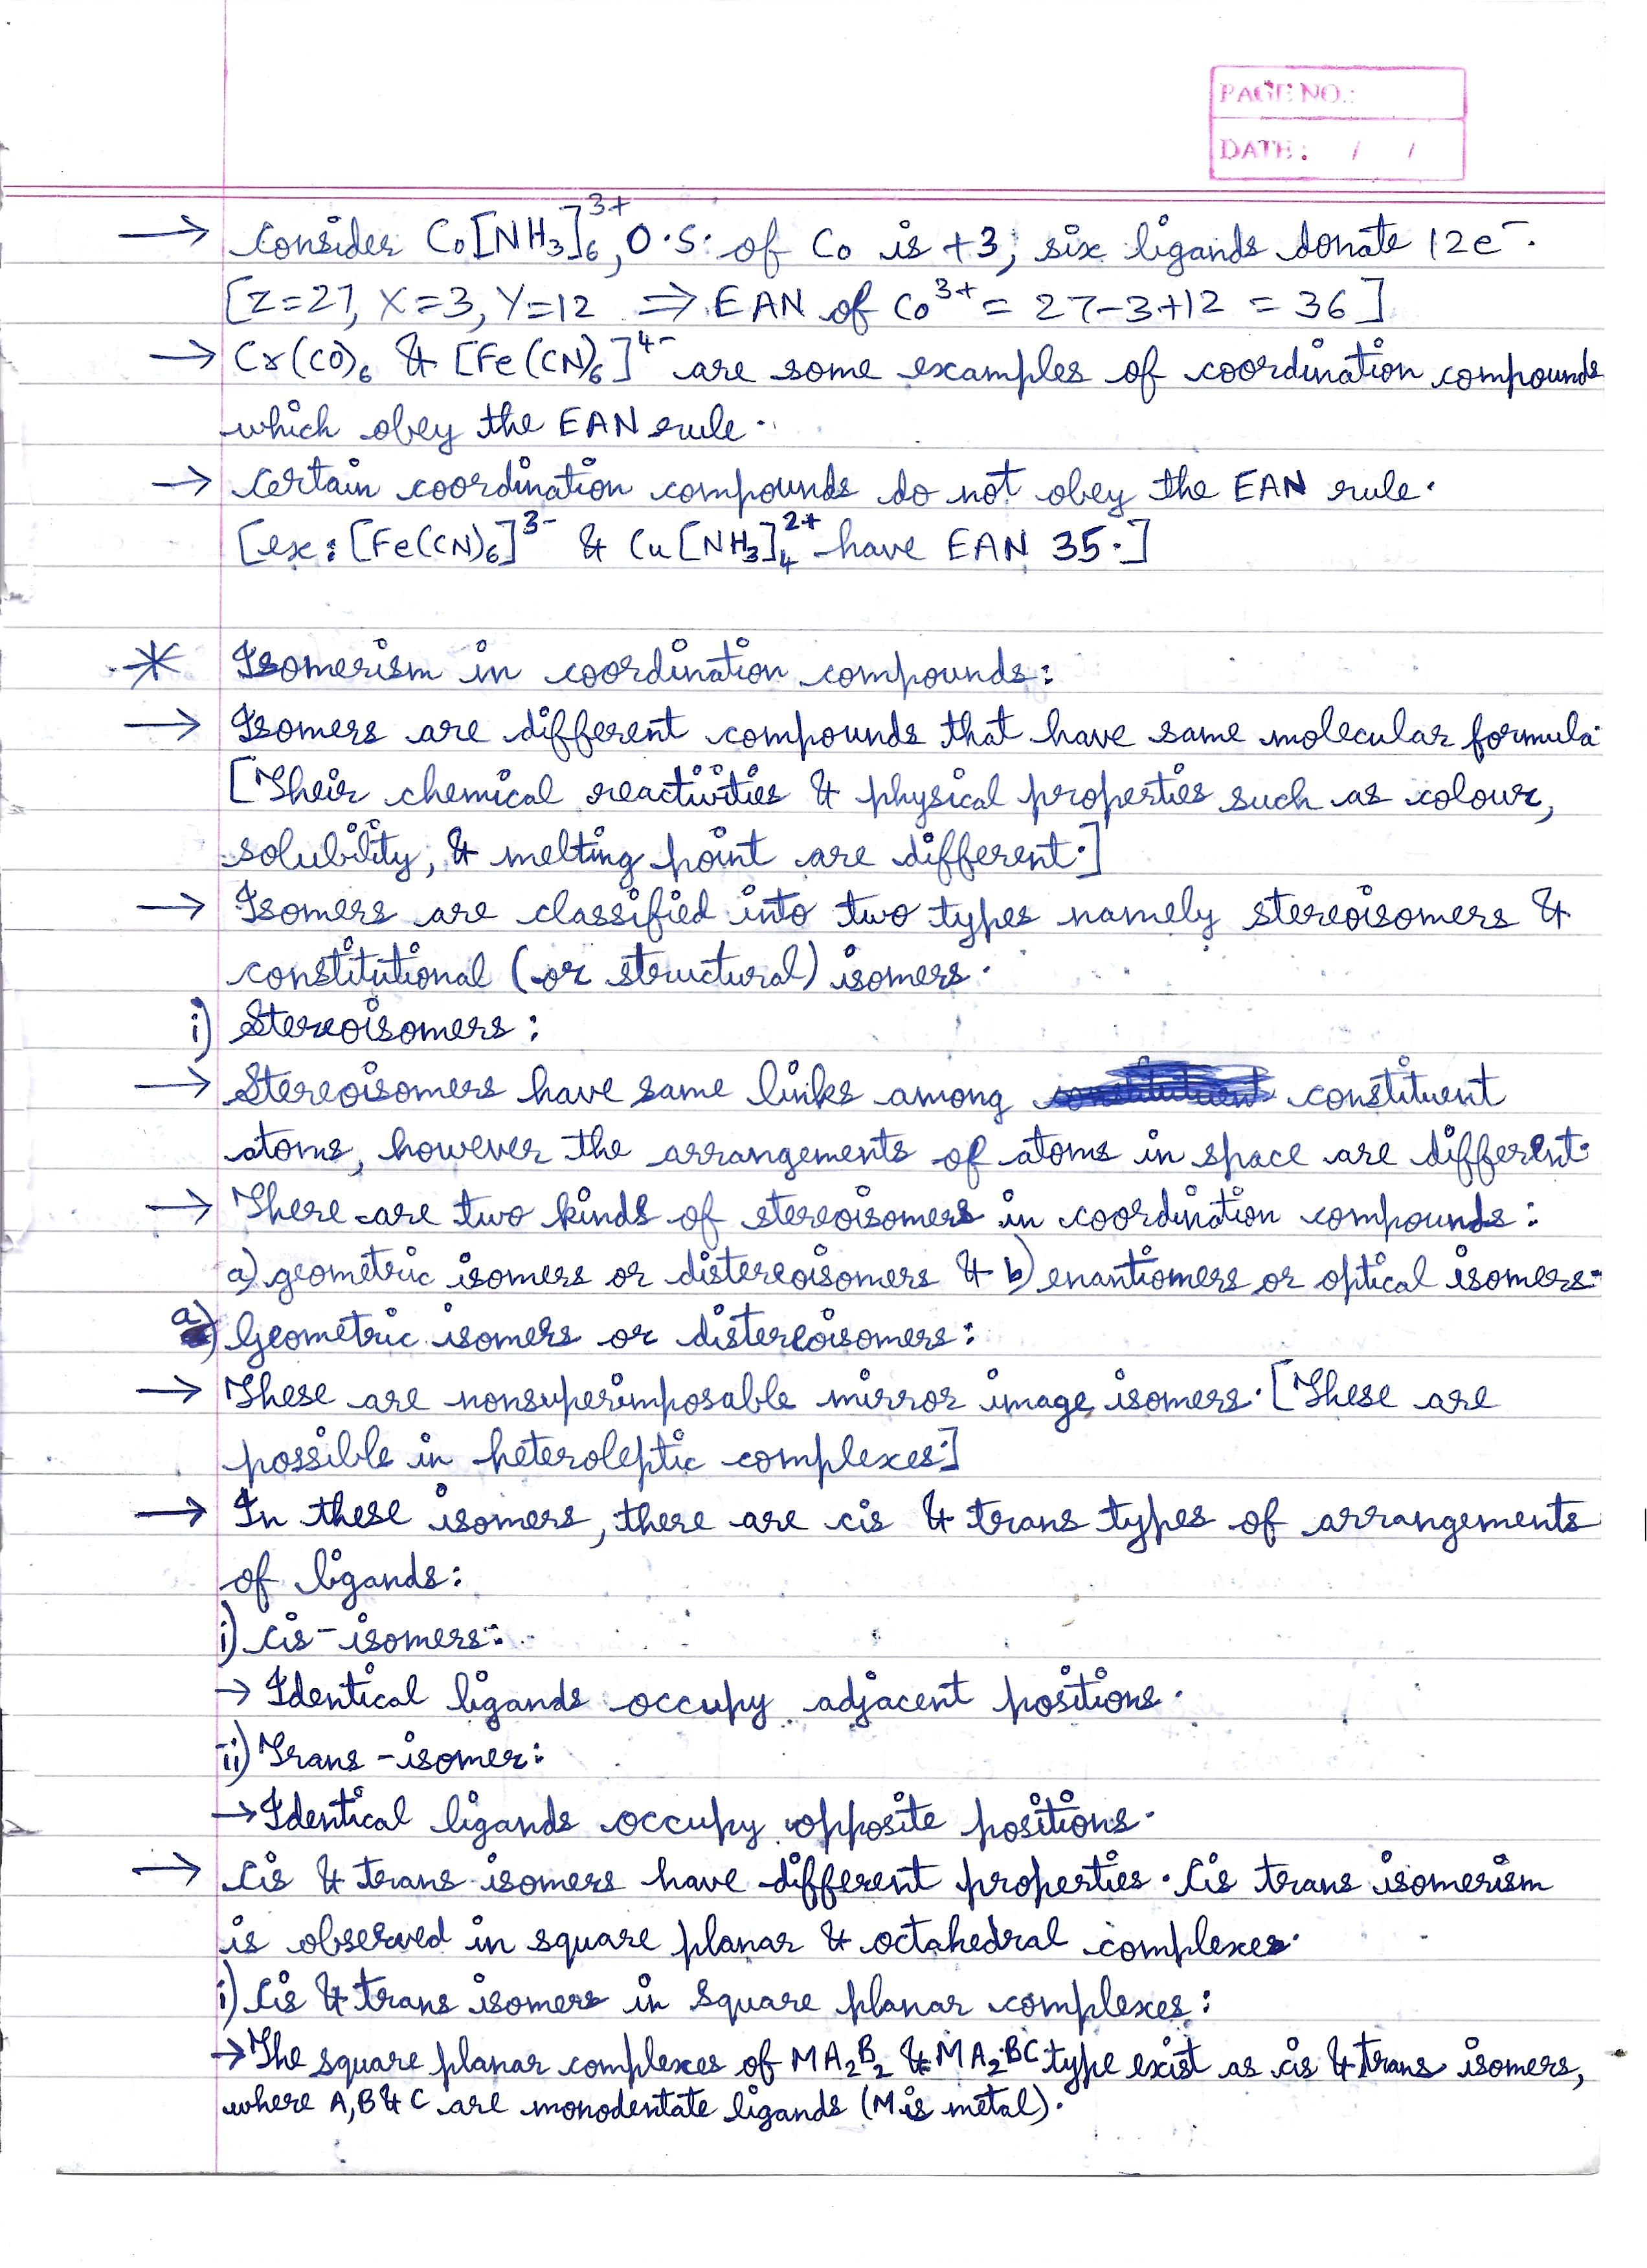 PAGE NO.:
DATE: / /
→ Consider Co[NH₃]₆³⁺, O.S. of Co is +3; six ligands donate 12e⁻.
[Z=27, X=3, Y=12 ⇒ EAN of Co³⁺ = 27-3+12 = 36]
→ Cr(CO)₆ & [Fe(CN)₆]⁴⁻ are some examples of coordination compounds
which obey the EAN rule.
→ Certain coordination compounds do not obey the EAN rule.
[ex: [Fe(CN)₆]³⁻ & Cu[NH₃]₄²⁺ have EAN 35.]
* Isomerism in coordination compounds:
→ Isomers are different compounds that have same molecular formula.
[Their chemical reactivities & physical properties such as colour,
solubility, & melting point are different.]
→ Isomers are classified into two types namely stereoisomers &
constitutional (or structural) isomers.
i) Stereoisomers:
→ Stereoisomers have same links among constituent
atoms, however the arrangements of atoms in space are different.
→ There are two kinds of stereoisomers in coordination compounds:
a) geometric isomers or distereoisomers & b) enantiomers or optical isomers.
a) Geometric isomers or distereoisomers:
→ These are nonsuperimposable mirror image isomers. [These are
possible in heteroleptic complexes.]
→ In these isomers, there are cis & trans types of arrangements
of ligands:
i) Cis-isomers:
→ Identical ligands occupy adjacent positions.
ii) Trans-isomer:
→ Identical ligands occupy opposite positions.
→ Cis & trans isomers have different properties. Cis trans isomerism
is observed in square planar & octahedral complexes.
i) Cis & trans isomers in square planar complexes:
→ The square planar complexes of MA₂B₂ & MA₂BC type exist as cis & trans isomers,
where A, B & C are monodentate ligands (M is metal).